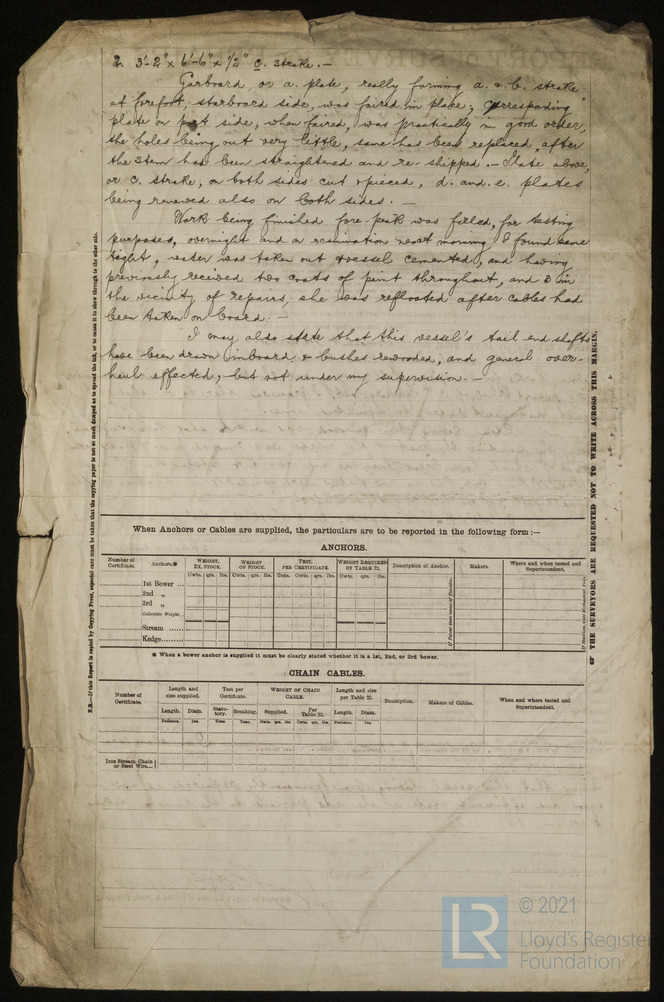 2. 3'-2" x 6'-6" x 1/2" c. strake. —
Garboard, or a. plate, really forming a. & b. strake
at forefoot, starboard side, was faired in place; corresponding
plate on port side, when faired, was practically in good order,
the holes being out very little, same has been replaced, after
the stem has been straightened and re-shipped. — Plate above,
or c. strake, on both sides cut & pieced, d. and e. plates
being renewed also on both sides. —
Work being finished fore-peak was filled, for testing
purposes, overnight and on examination next morning I found same
tight, water was taken out & vessel cemented, and having
previously received two coats of pint throughout, and 3 in
the vicinity of repairs, she was refloated after cables had
been taken on board. —
I may also state that this vessel's tail end shafts
have been drawn inboard, & bushes rewooded, and general over-
haul effected, but not under my supervision. —
N.B.—If this Report is copied by Copying Press, especial care must be taken that the copying paper is not so much damped as to spread the ink, or to cause it to show through to the other side.
☞ THE SURVEYORS ARE REQUESTED NOT TO WRITE ACROSS THIS MARGIN.
When Anchors or Cables are supplied, the particulars are to be reported in the following form:—
ANCHORS.
Number of Certificate. Anchors.* WEIGHT, EX. STOCK. WEIGHT OF STOCK. TEST, PER CERTIFICATE. WEIGHT REQUIRED BY TABLE 22. Description of Anchor. Makers. Where and when tested and Superintendent.
Cwts. qrs. lbs. Cwts. qrs. lbs. Tons. Cwts. qrs. lbs. Cwts. qrs. lbs.
1st Bower ...
2nd „
3rd „
Collective Weight.
Stream ......
Kedge.........
* When a bower anchor is supplied it must be clearly stated whether it is a 1st, 2nd, or 3rd bower.
CHAIN CABLES.
Number of Certificate. Length and size supplied. Test per Certificate. WEIGHT OF CHAIN CABLE. Length and size per Table 22. Description. Makers of Cables. When and where tested and Superintendent.
Length. Diam. Statutory. Breaking. Supplied. Per Table 22. Length. Diam.
Fathoms. Ins. Tons. Tons. Cwts. qrs. lbs. Cwts. qrs. lbs. Fathoms. Ins.
Iron Stream Chain or Steel Wire...
LR
© 2021
Lloyd's Register
Foundation